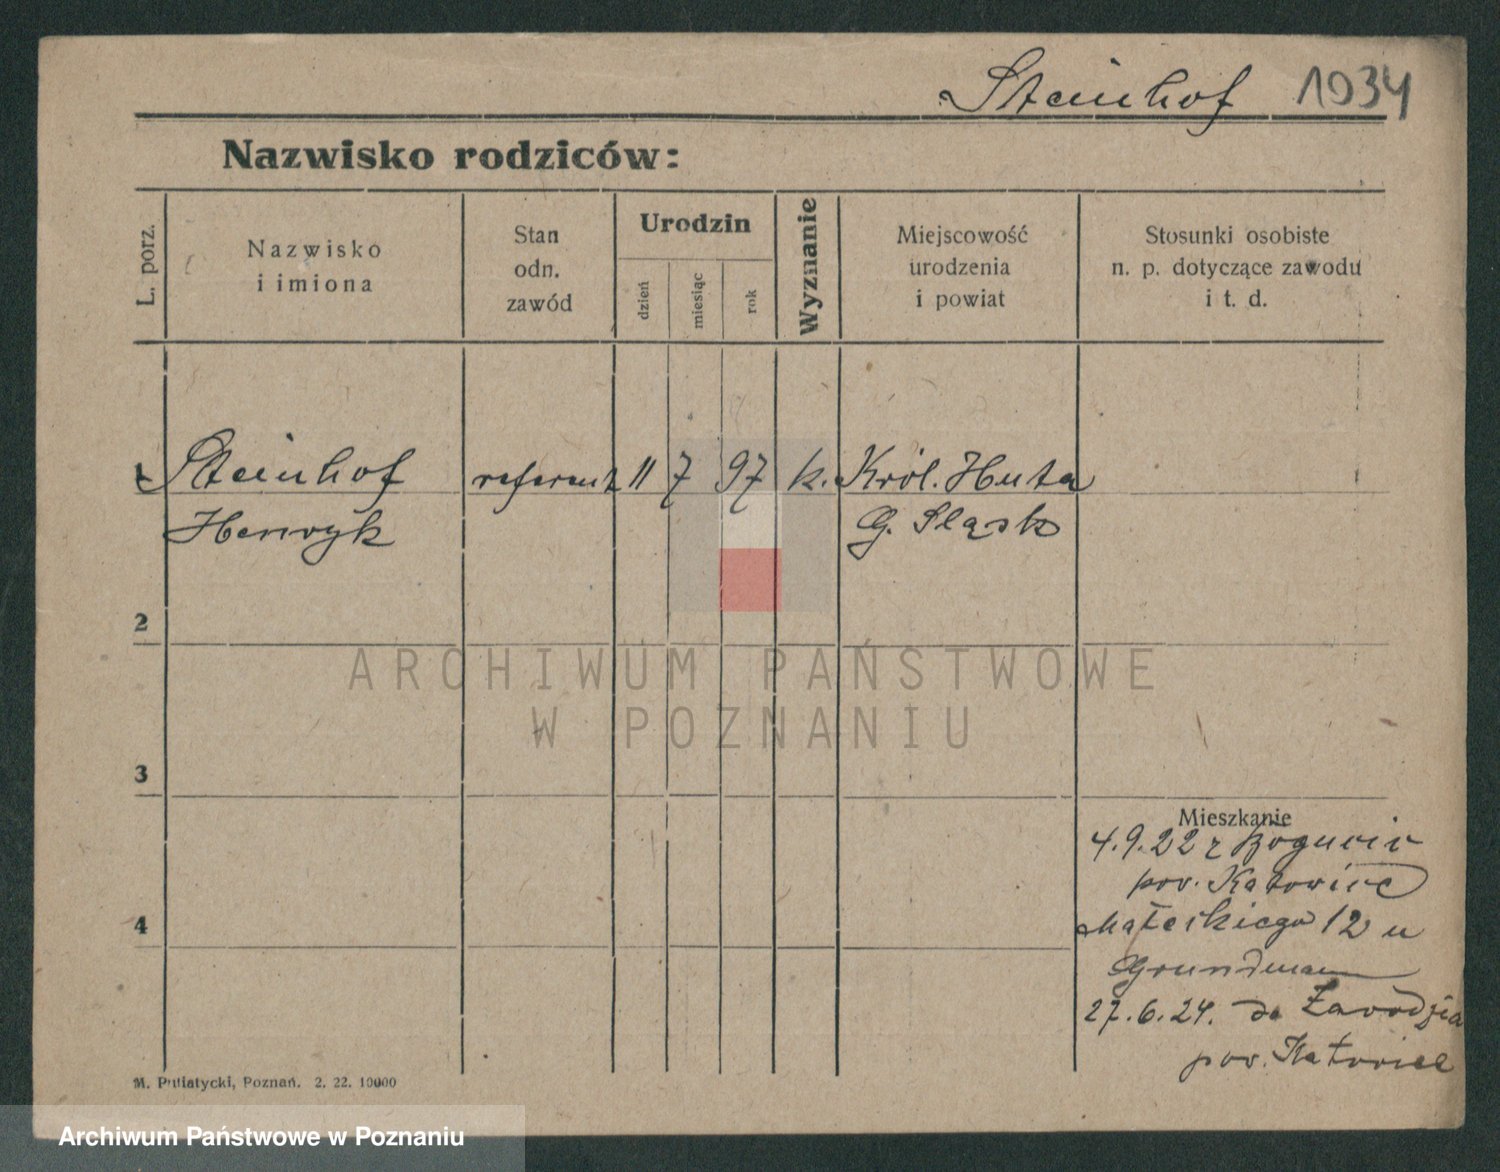 Steinhof 1934
Nazwisko rodziców:
L. porz.
Nazwisko
i imiona
Stan
odn.
zawód
Urodzin
dzień
miesiąc
rok
Wyznanie
Miejscowość
urodzenia
i powiat
Stosunki osobiste
n. p. dotyczące zawodu
i t. d.
1 Steinhof referent 11 7 97 k. Król. Huta
Henryk G. Śląsk
2
3
4
ARCHIWUM PAŃSTWOWE
W POZNANIU
Mieszkanie
4.9.22 z Bogucic
pow. Katowice
Małeckiego 12 u
Grundman
27.6.24. do Zawodzia
pow. Katowice
M. Putiatycki, Poznań. 2. 22. 10000
Archiwum Państwowe w Poznaniu